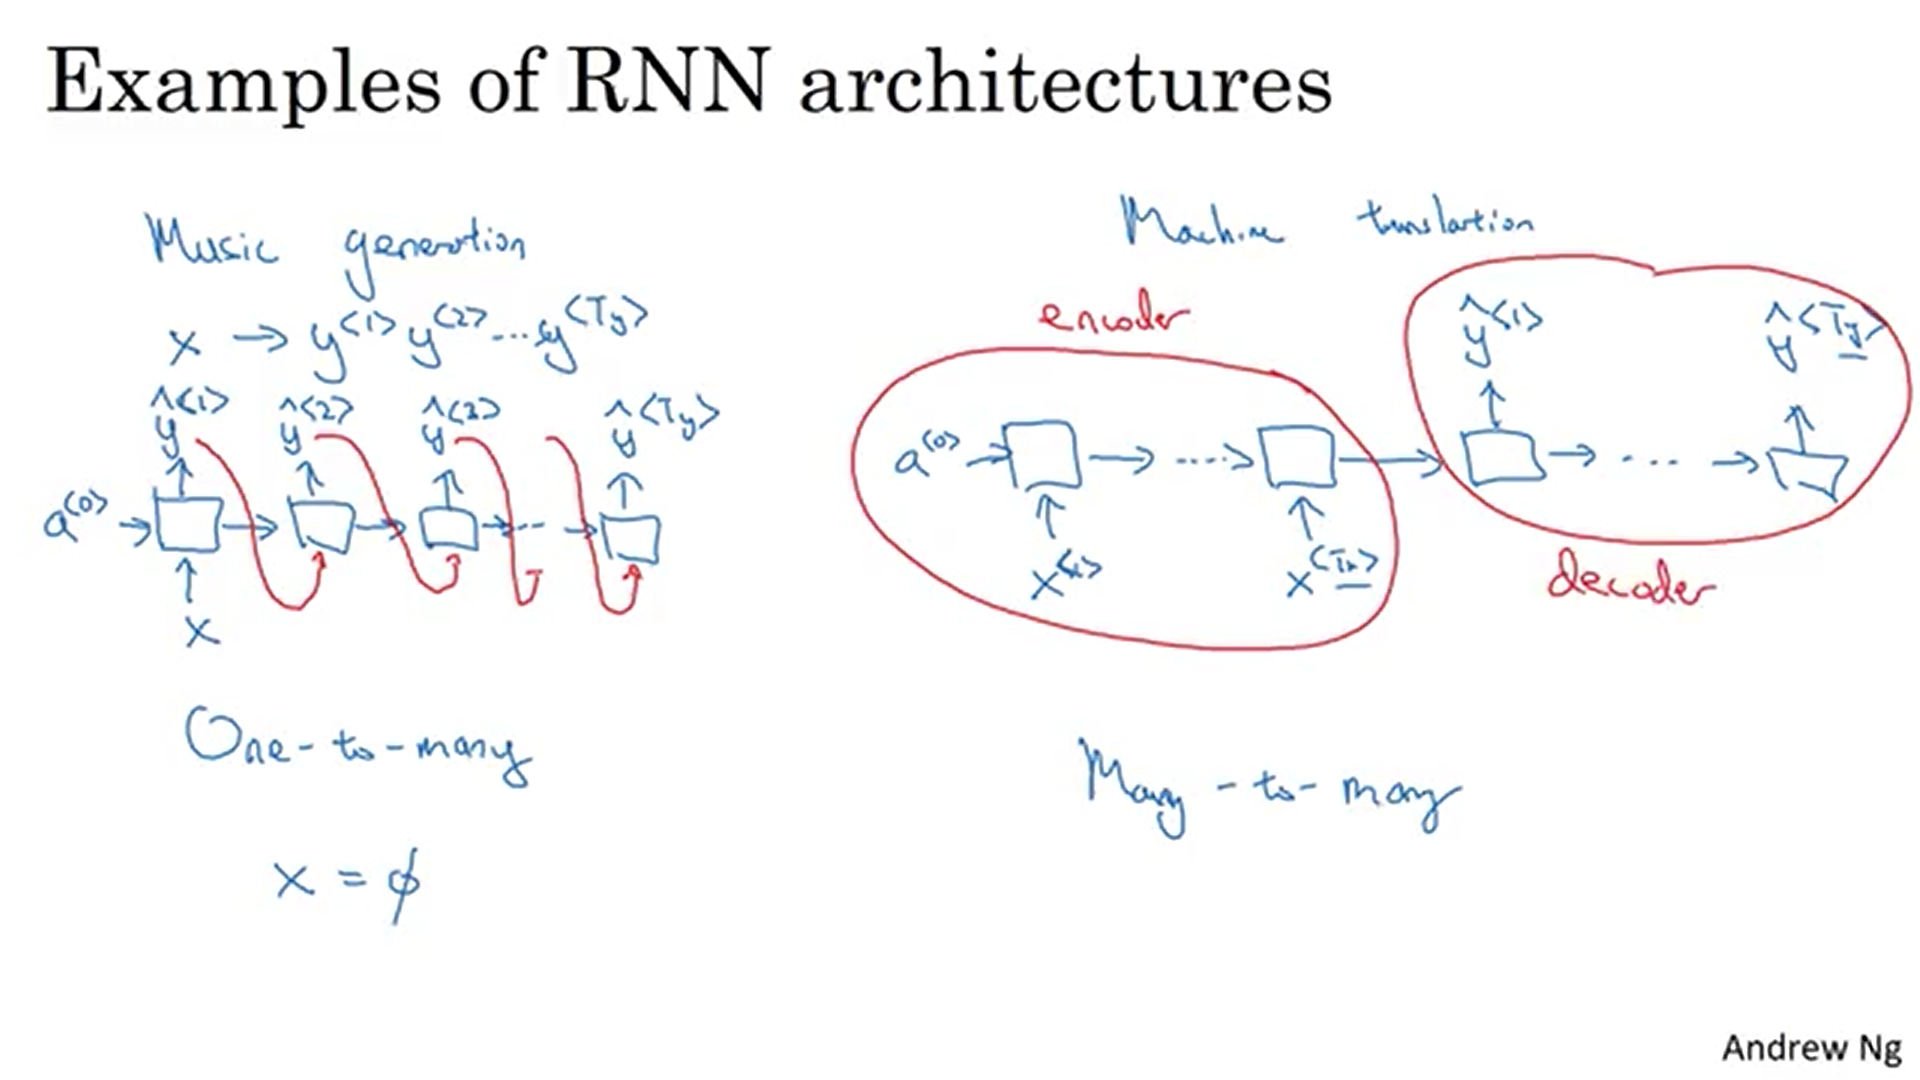 Examples of RNN architectures
Music generation
x → y<1> y<2> ... y<Ty>
ŷ<1> ŷ<2> ŷ<3> ŷ<Ty>
a<0>
x
One-to-many
x = ϕ
Machine translation
encoder
ŷ<1> ŷ<Ty>
a<0>
x<1> x<Tx>
decoder
Many-to-many
Andrew Ng